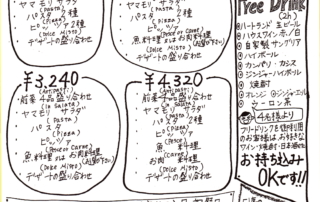 ヤマモリ サラダ
(Pasta)
パスタ 2種
(Pizza)
ピッツァ 2種
(Pesce or Carne)
魚料理 または お肉料理
(Dolce Misto)
デザートの盛り合わせ
¥3,240
(Antipasti)
前菜4品盛り合わせ
(Insalata)
ヤマモリ サラダ
(Pasta)
パスタ
(Pizza)
ピッツァ
(Pesce or Carne)
魚料理 または お肉料理
(Dolce Misto)
デザートの盛り合わせ
ヤマモリ サラダ
(Pasta)
パスタ
(Pizza)
ピッツァ 2種
(Pesce or Carne)
魚料理 または お肉料理
(Dolce Misto)
デザートの盛り合わせ
¥4,320
(Antipasti)
盛り合わせ
(Insalata)
ヤマモリ サラダ
(Pasta)
パスタ
(Pizza)
ピッツァ
(Pesce)
魚 料理
(Carne)
お肉 料理
(Dolce Misto)
デザートの盛り合わせ
Free Drink
(2h)
ハートランド 生ビール
ハウスワイン 赤/白
自家製 サングリア
ハイボール
カンパリ・カシス
ジンジャーハイボール
焼酎
オレンジ ジンジャエール
ウーロン茶
4名様より
フリードリンクを御利用
のお客様は、お好きな
ワイン・焼酎・日本酒など
お持ち込み
OKです!!